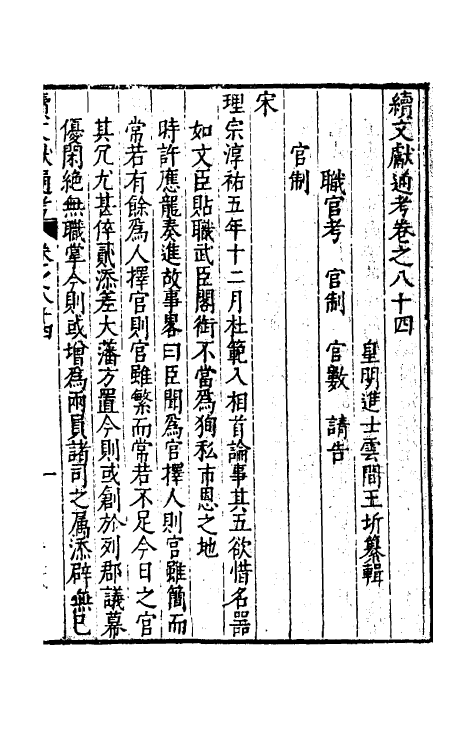 續文獻通考卷之八十四
皇明進士雲間王圻纂輯
職官考 官制 官數 請告
官制
宋
理宗淳祐五年十二月杜範入相首論事其五欲惜名器
如文臣貼職武臣閣衘不當爲狥私市恩之地
時許應龍奏進故事畧曰臣聞爲官擇人則官雖簡而
常若有餘爲人擇官則官雖繁而常若不足今日之官
其冗尤甚倅貳添差大藩方置今則或創於列郡議幕
優閑絶無職掌今則或增爲兩員諸司之属添辟無已
續文獻通考
卷之八十四
一